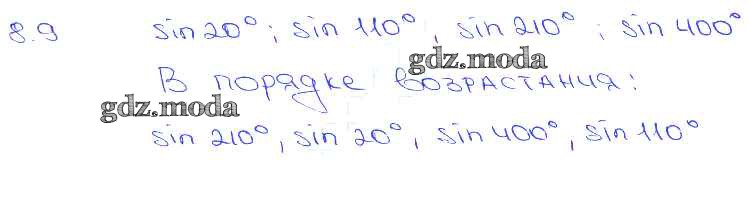 8.9 sin 20°; sin 110°, sin 210°; sin 400°
gdz.moda
В порядке возрастания:
gdz.moda
sin 210°, sin 20°, sin 400°, sin 110°